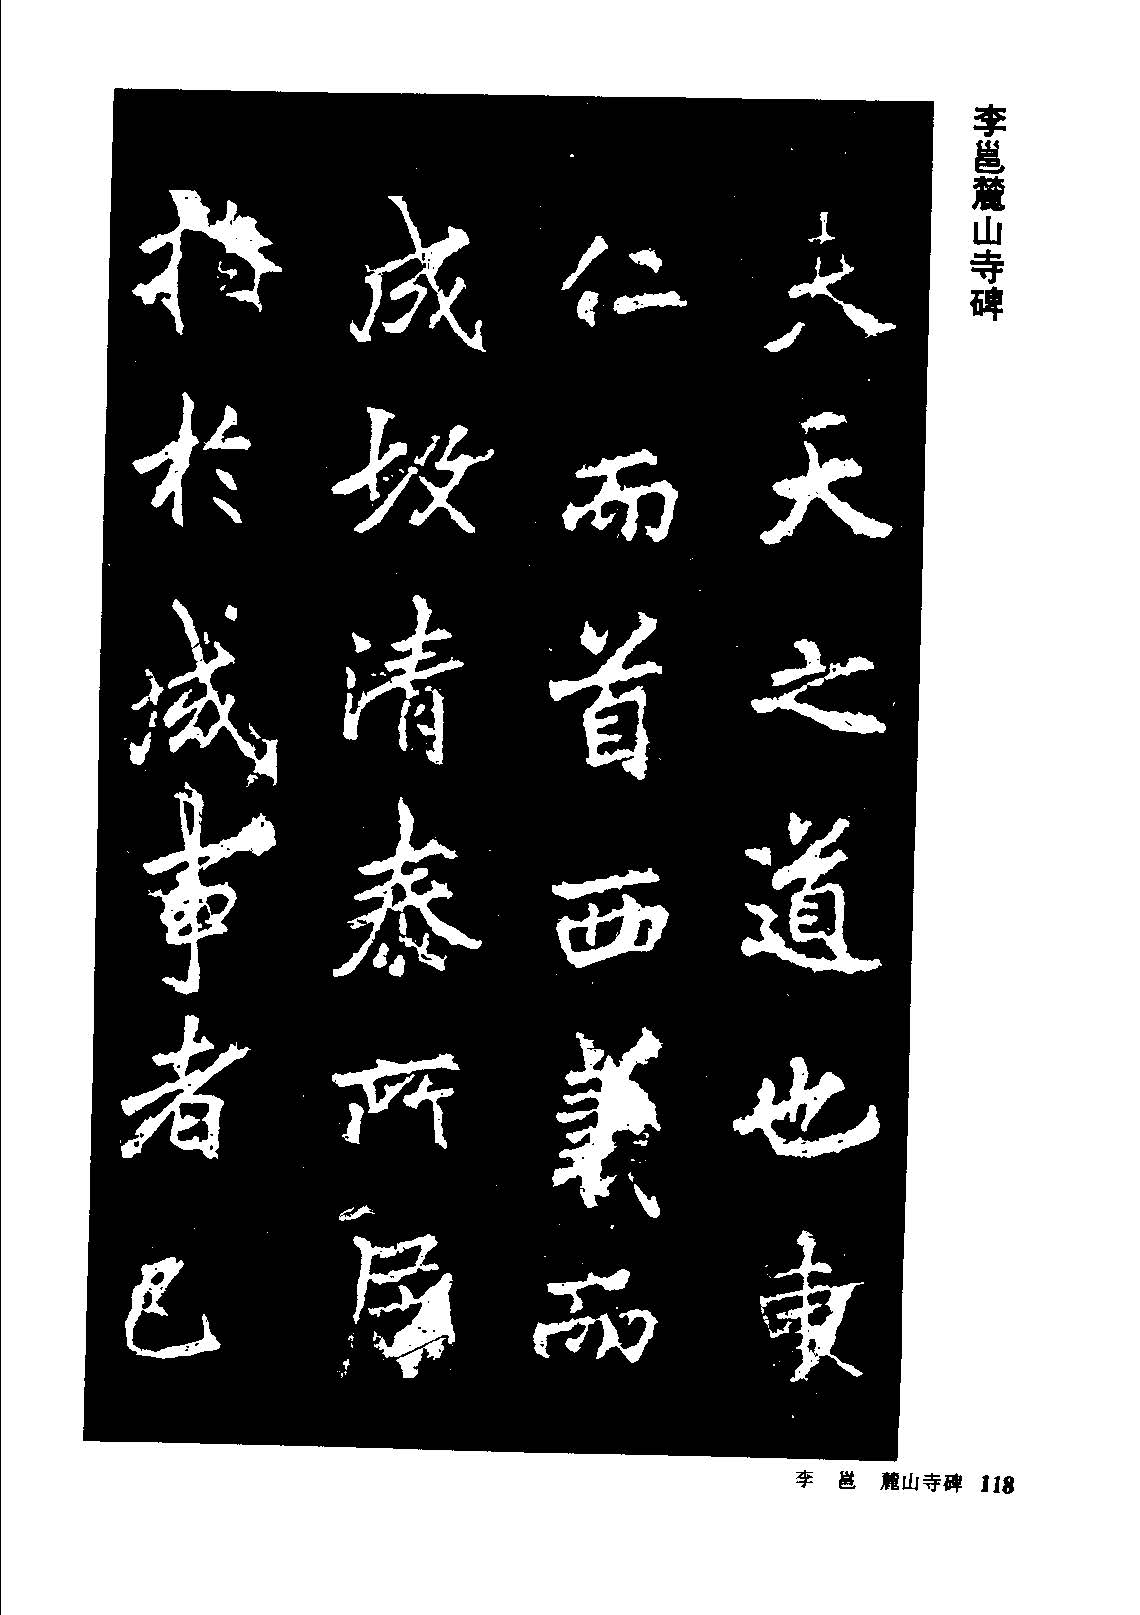 李邕麓山寺碑
夫天之道也東
仁而首西義而
成故清泰所居
指於成事者已
李 邕 麓山寺碑 118